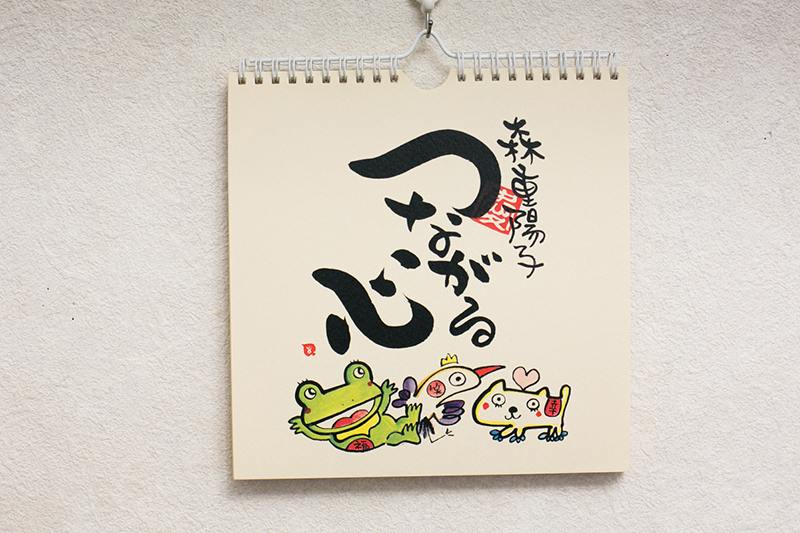 森重陽子
つながる
心
幸